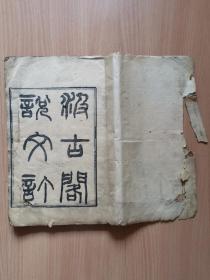 汲古閣
說文訂